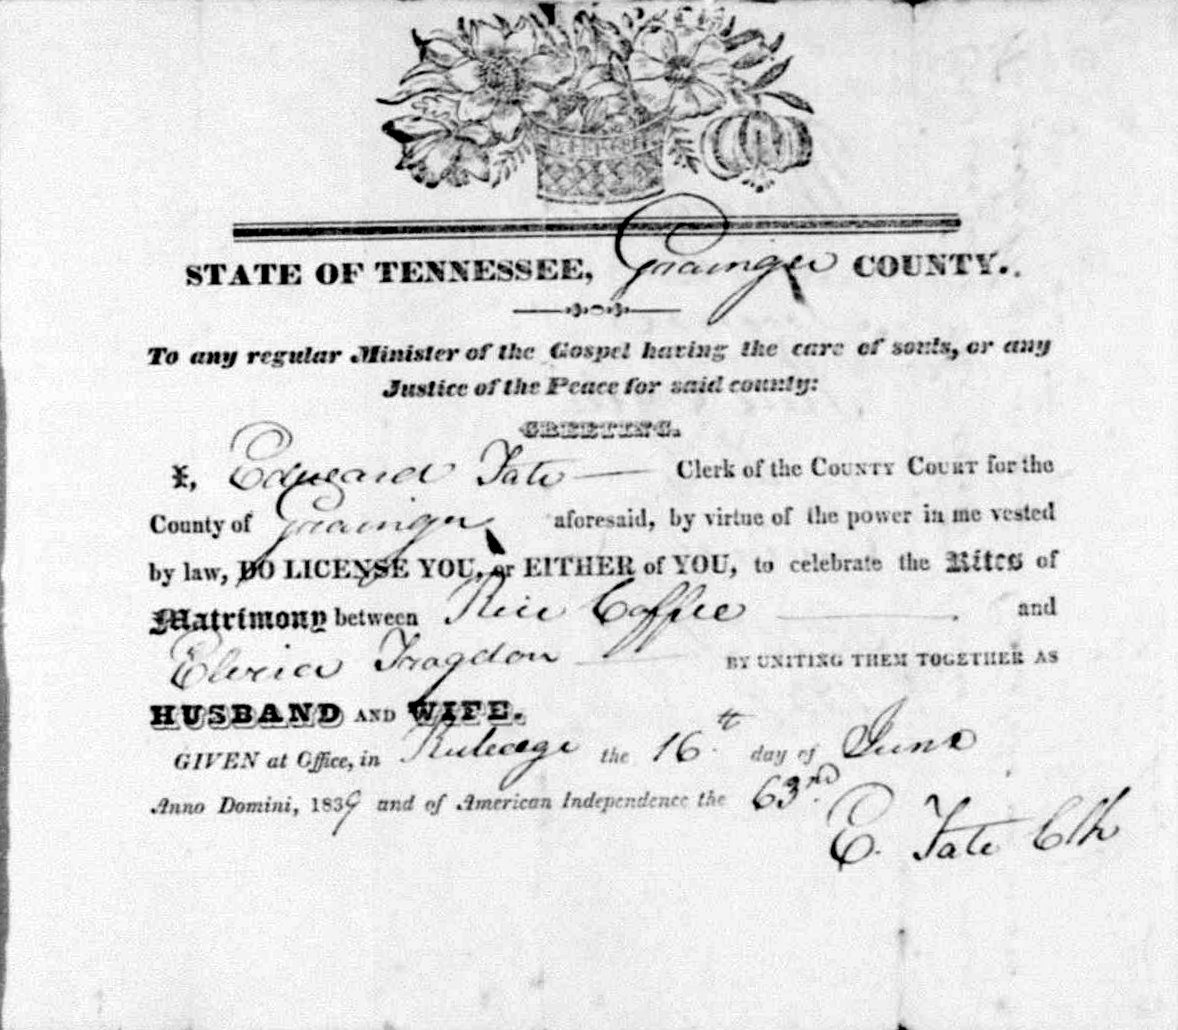 STATE OF TENNESSEE, Grainger COUNTY.
To any regular Minister of the Gospel having the care of souls, or any
Justice of the Peace for said county:
GREETING.
I, Edward Tate Clerk of the COUNTY COURT for the
County of Grainger aforesaid, by virtue of the power in me vested
by law, DO LICENSE YOU, or EITHER of YOU, to celebrate the Rites of
Matrimony between Rice Coffee and
Elvira Tragdon BY UNITING THEM TOGETHER AS
HUSBAND AND WIFE.
GIVEN at Office, in Rutledge the 16th day of June
Anno Domini, 1839 and of American Independence the 63rd
E. Tate Clk